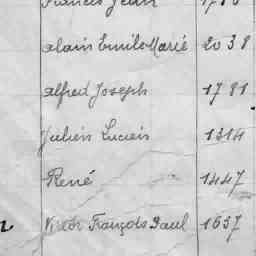 Francis Jean
Alain Emile Marié 2038
Alfred Joseph 1781
Julien Lucien 1314
René 1447
Victor François Paul 1657